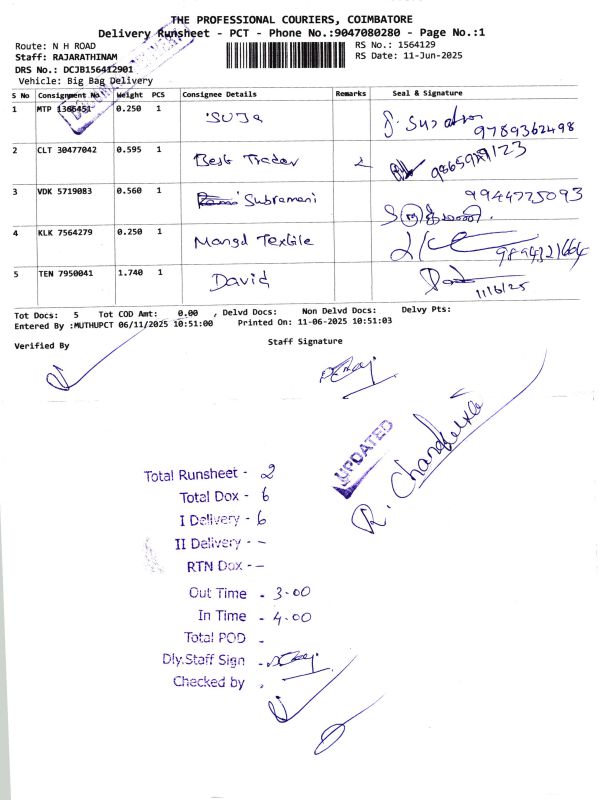 THE PROFESSIONAL COURIERS, COIMBATORE
Delivery Runsheet - PCT - Phone No.:9047080280 - Page No.:1
Route: N H ROAD
RS No.: 1564129
Staff: RAJARATHINAM
RS Date: 11-Jun-2025
DRS No.: DCJB156412901
Vehicle: Big Bag Delivery
S No Consignment No Weight PCS Consignee Details Remarks Seal & Signature
1 MTP 1366451 0.250 1 SUJA 9789362498
2 CLT 30477042 0.595 1 Best Trader 2
3 VDK 5719083 0.560 1 Subramani 9944725093
4 KLK 7564279 0.250 1 Mangal Textile 9894321664
5 TEN 7950041 1.740 1 David 11/6/25
Tot Docs: 5 Tot COD Amt: 0.00 , Delvd Docs: Non Delvd Docs: Delvy Pts:
Entered By :MUTHUPCT 06/11/2025 10:51:00 Printed On: 11-06-2025 10:51:03
Verified By
Staff Signature
UPDATED
R. Chandra
Total Runsheet - 2
Total Dox - 6
I Delivery - 6
II Delivery - -
RTN Dox - -
Out Time - 3.00
In Time - 4.00
Total POD -
Dly.Staff Sign -
Checked by